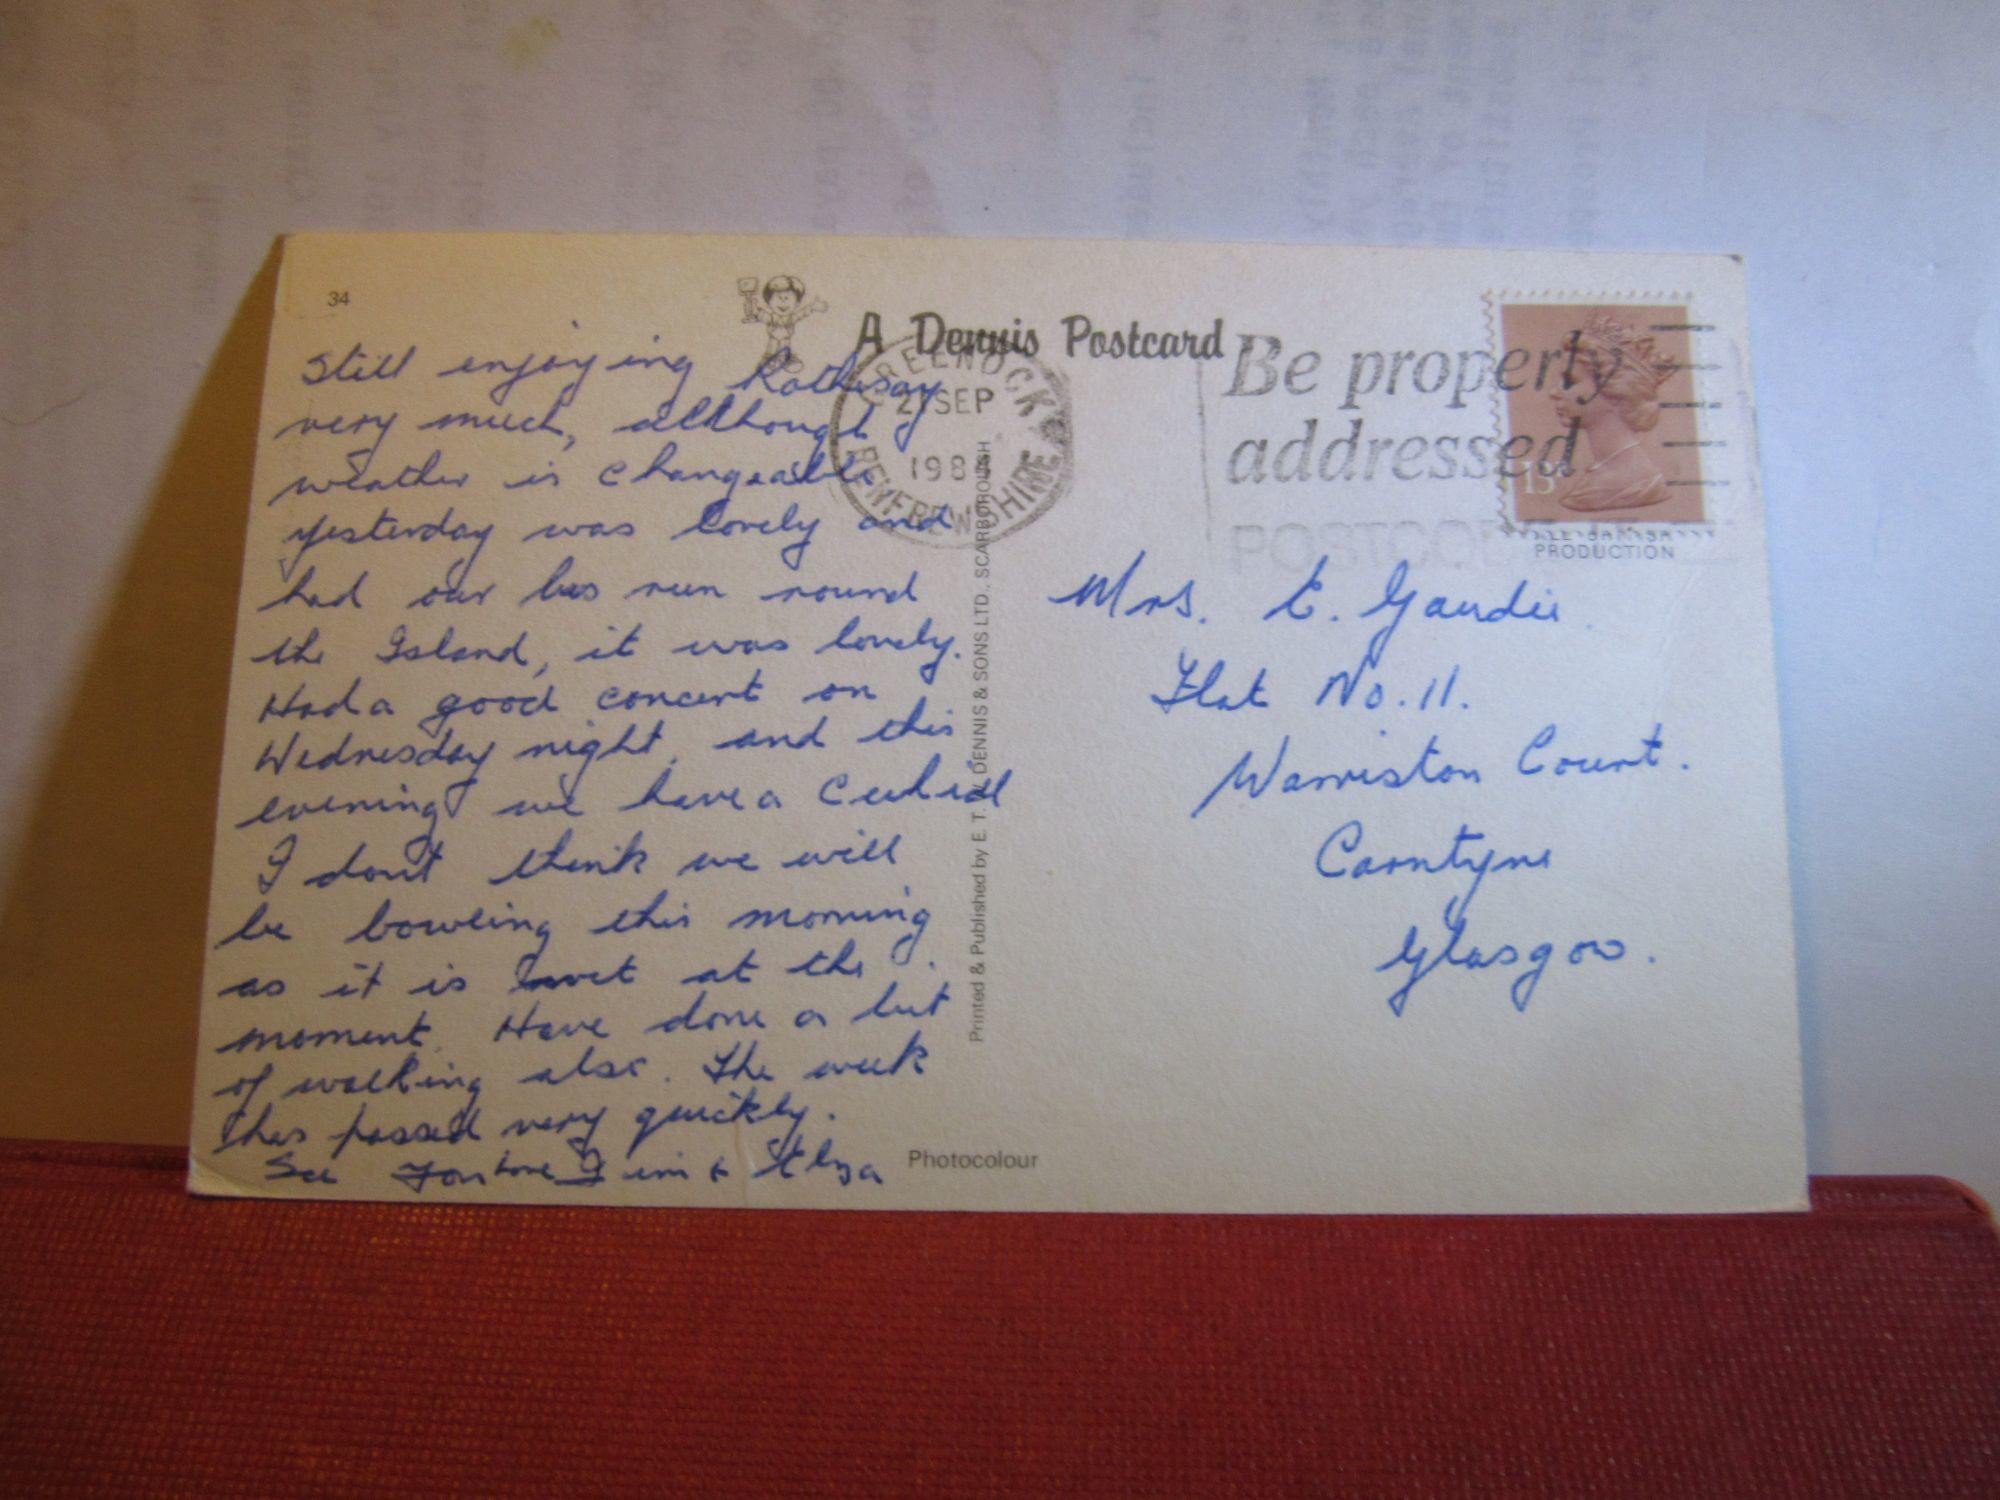 34
A Dennis Postcard
Still enjoying Rothesay
very much, although
weather is changeable
yesterday was lovely and
had our bus run round
the Island, it was lovely.
Had a good concert on
Wednesday night, and this
evening we have a Ceehidl
I don't think we will
be bowling this morning
as it is wet at the
moment. Have done a bit
of walking also. The week
has passed very quickly.
See You Love Jim & Elza
GREENOCK
21 SEP
198
RENFREWSHIRE
Be properly
addressed
POSTCODE
13
PRODUCTION
Mrs. E. Gaudie.
Flat No. 11.
Warriston Court.
Carntyne
Glasgow.
Printed & Published by E. T. W. DENNIS & SONS LTD., SCARBOROUGH
Photocolour